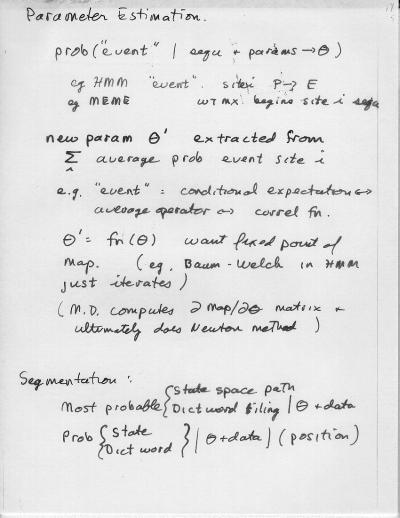 Parameter Estimation.
prob("event" | sequ + params → θ)
eg HMM "event". site i P → E
eg MEME wt mx begins site i sequ
new param θ' extracted from
Σ average prob event site i
e.g. "event" = conditional expectation ↔
average operator ↔ correl fn.
θ' = fn(θ) want fixed point of
map. (eg, Baum-Welch in HMM
just iterates)
(M.D. computes ∂ Map/∂θ matrix +
ultimately does Newton method)
Segmentation :
Most probable { State space path
Dict word tiling | θ + data
Prob { State
Dict word } | θ + data ] (position)